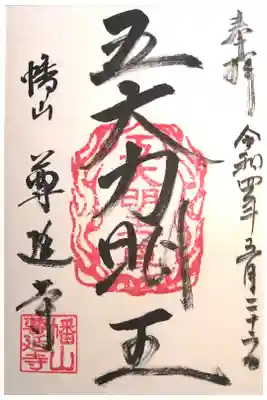 奉拝
令和四年五月二十六日
五大力明王
五大明王
幡山
尊延寺
幡山
尊延寺